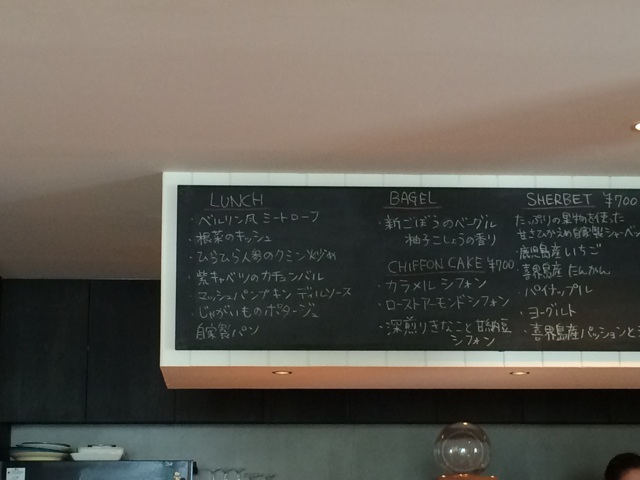 LUNCH
・ベルリン風ミートローフ
・根菜のキッシュ
・ひらひら人参のクミン炒め
・紫キャベツのカチュンバル
・マッシュパンプキン ディルソース
・じゃがいものポタージュ
自家製パン
BAGEL
・新ごぼうのベーグル
柚子こしょうの香り
CHIFFON CAKE ¥700
・カラメルシフォン
・ローストアーモンドシフォン
・深煎りきなこと甘納豆
シフォン
SHERBET ¥700
たっぷりの果物を使った
甘さひかえめ自家製シャーベット
・鹿児島産いちご
・喜界島産たんかん
・パイナップル
・ヨーグルト
・喜界島産パッションと